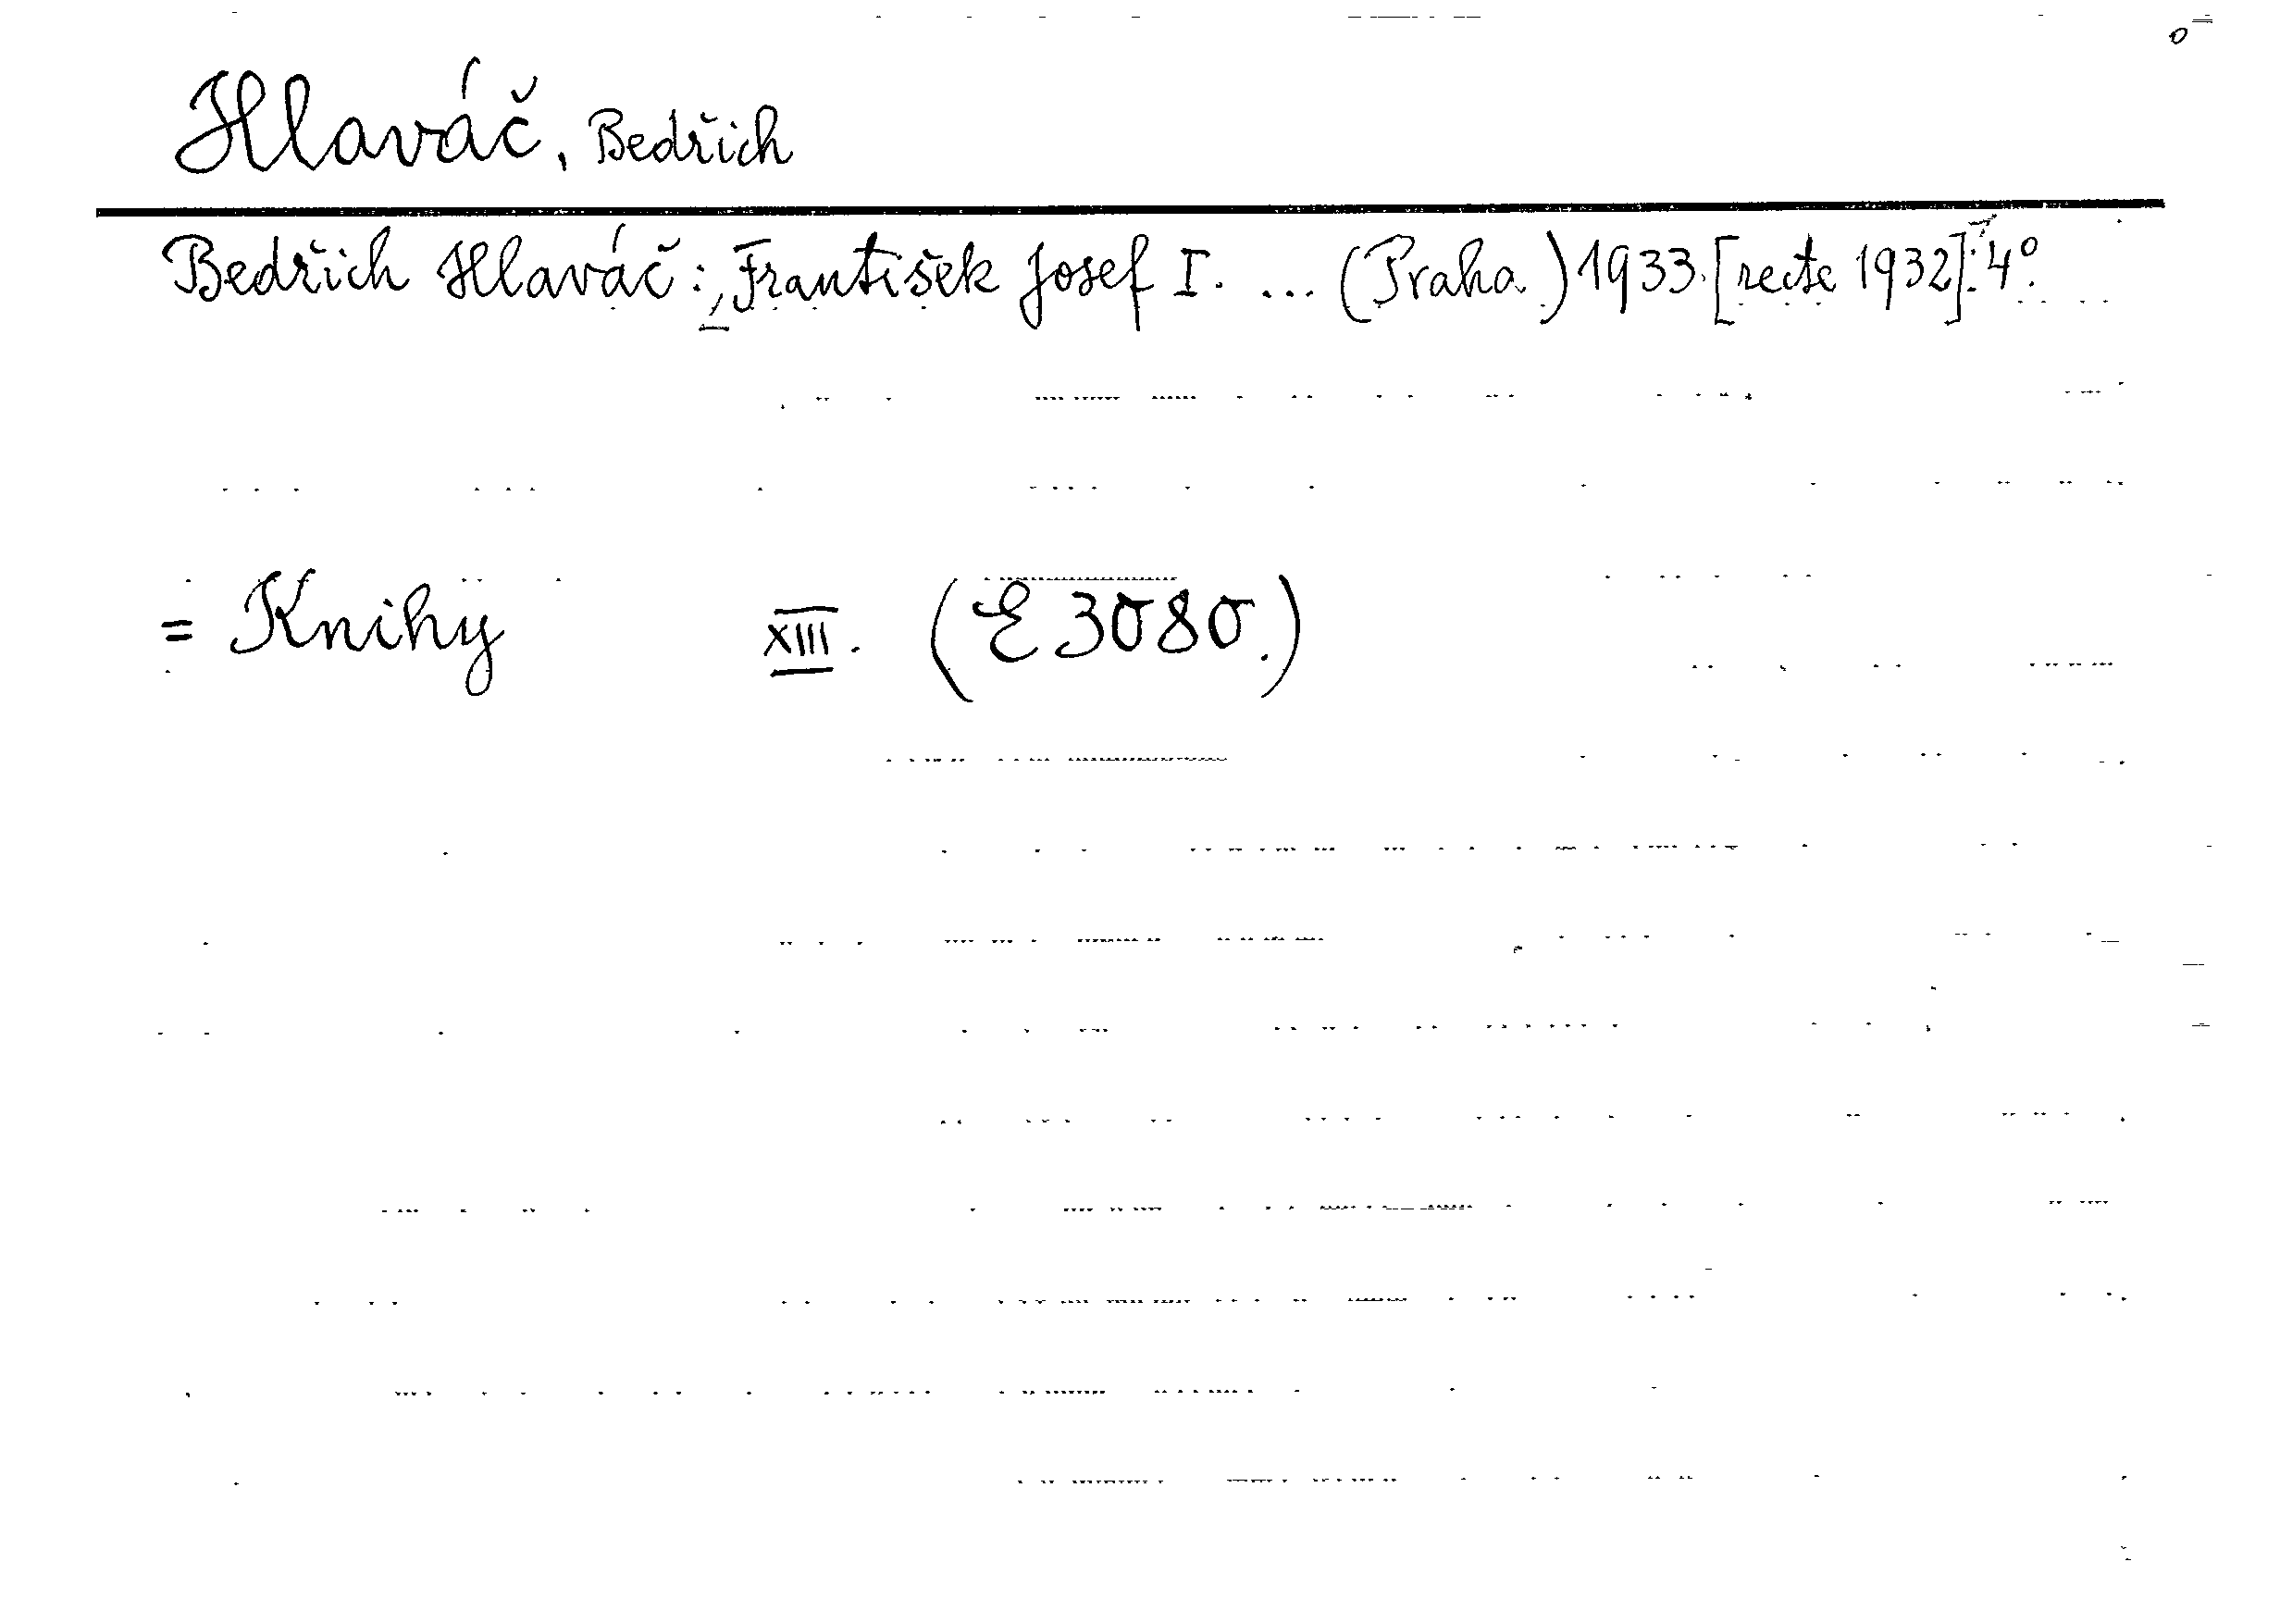 Hlaváč, Bedřich
Bedřich Hlaváč: František Josef I. ... (Praha) 1933. [recte 1932]. 4°.
= Knihy XIII. (E 3080.)